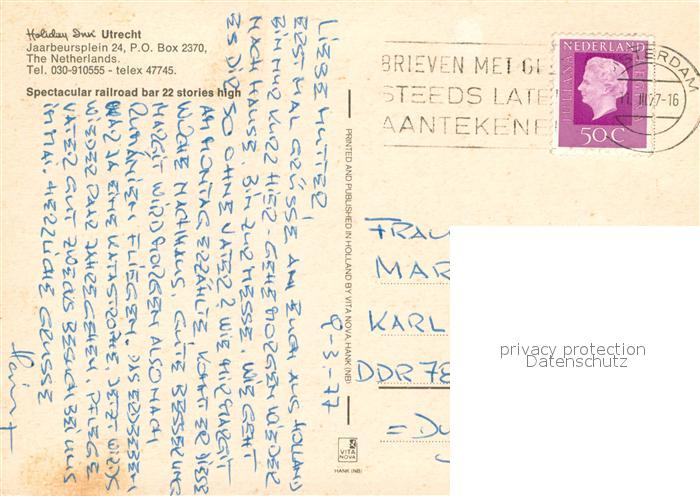 Holiday Inn Utrecht
Jaarbeursplein 24, P.O. Box 2370,
The Netherlands.
Tel. 030-910555 - telex 47745.
Spectacular railroad bar 22 stories high
8-3-77
LIEBE MUTTER!
ERST MAL GRÜSSE AN EUCH AUS HOLLAND
BIN NUR KURZ HIER - GEHE MORGEN WIEDER
NACH HAUSE. BIN ZUR MESSE. WIE GEHT
ES DIR SO OHNE VATER? WIE MIR MARGIT
AM MONTAG ERZÄHLTE, KOMMT ER DIESE
WOCHE NACH HAUS. GUTE BESSERUNG
MARGIT WIRD MORGEN ALSO NACH
RUMÄNIEN FLIEGEN. DAS ERDBEBEN
WAR JA EINE KATASTROPHE. JETZT WIRDS
WIEDER PAAR JAHRE GEHEN. PFLEGE
VATER GUT ZWECKS BESUCH BEI UNS
IM MAI. HERZLICHE GRÜSSE
Heinz
PRINTED AND PUBLISHED IN HOLLAND BY VITA NOVA, HANK (NB)
VITA
NOVA
HANK (NB)
BRIEVEN MET GE
STEEDS LATE
AANTEKENE
NEDERLAND
JULIANA REGINA
50 C
STERDAM
-16
FRAU
MAR
KARL
DDR 78
= DU
privacy protection
Datenschutz